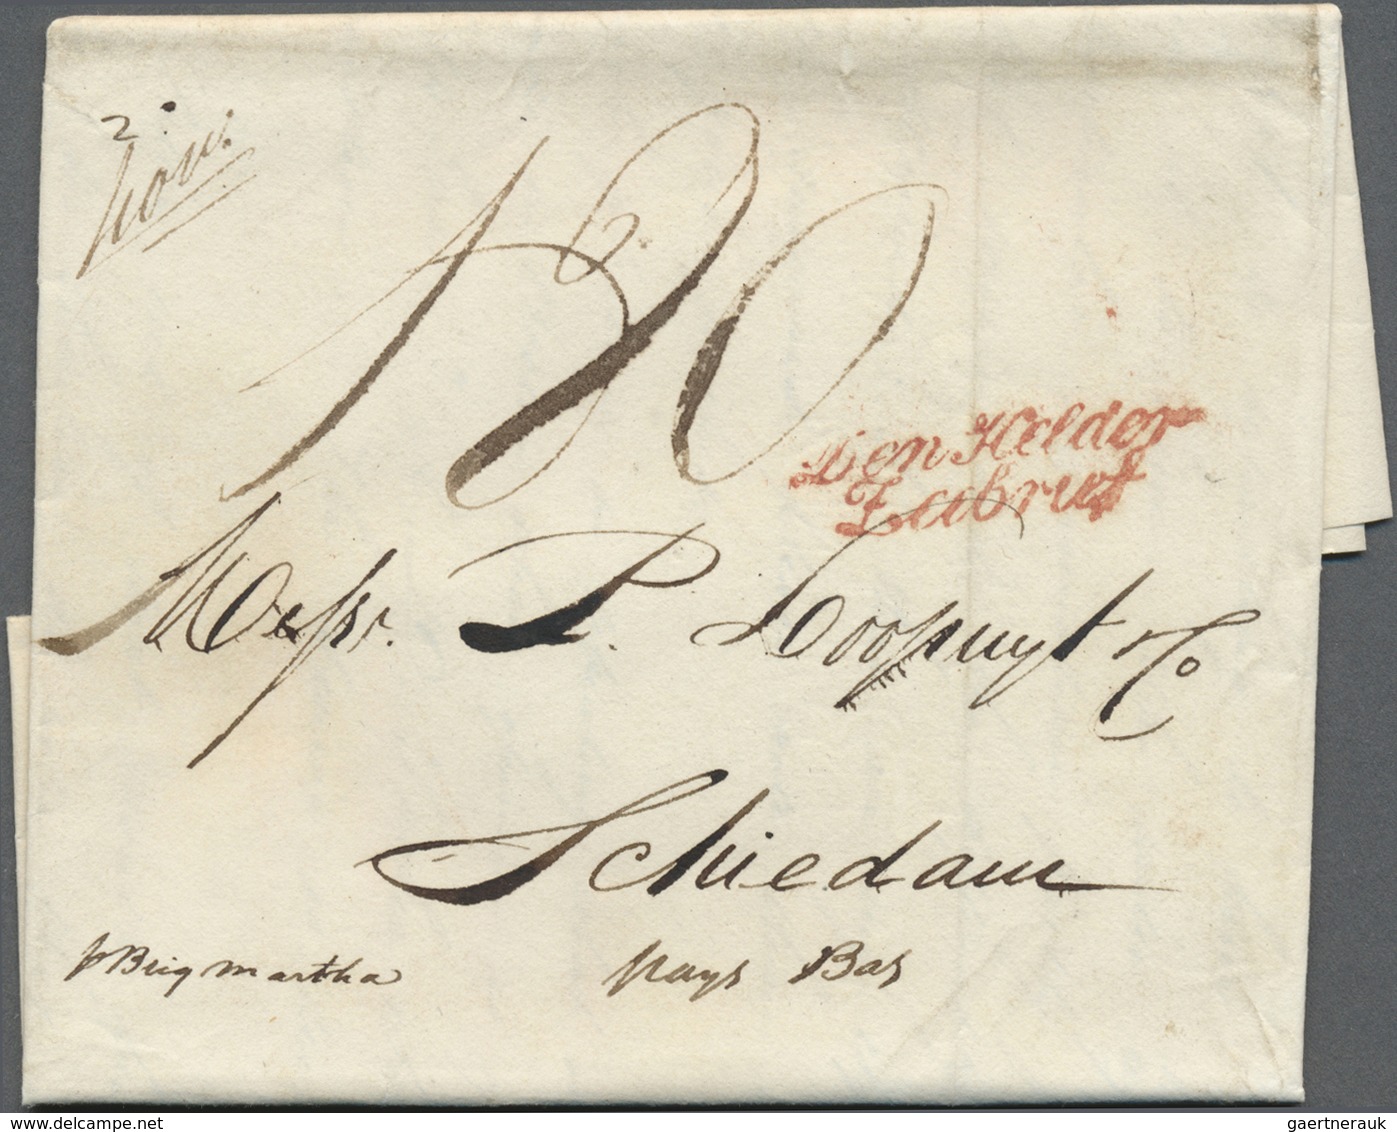 2
120
Den Helder
Zeebrief
Messr. P. Loopuyt & Co
Schiedam
p Brig Martha
pays Bas
www.delcampe.net
gaertnerauk